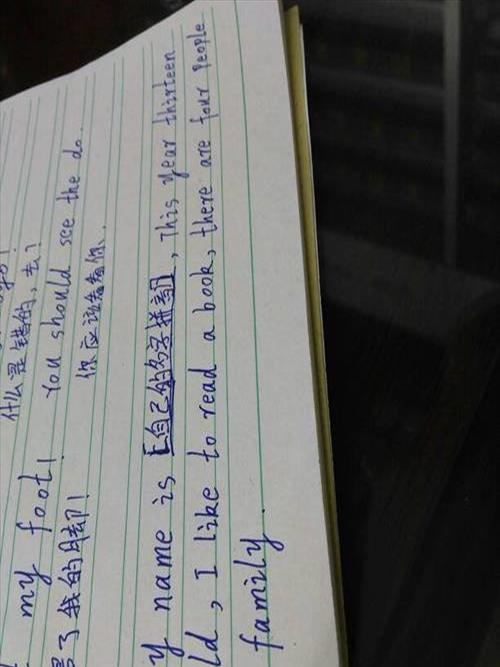 什么是错的，去？
my foot! You should see the do.
了我的脚！ 你应该看看你、
name is [自己的名字拼音], This year thirteen
ld, I like to read a book, there are four people
family.